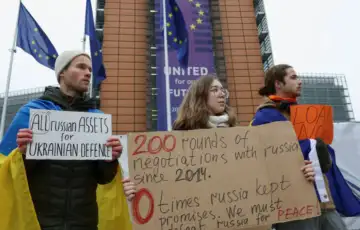 UNITED
FUTURE
All russian ASSETS
for
UKRAINIAN DEFENCE
200 rounds of
negotiations with russia
since 2014.
0 times russia kept
promises. We must
russia for PEACE